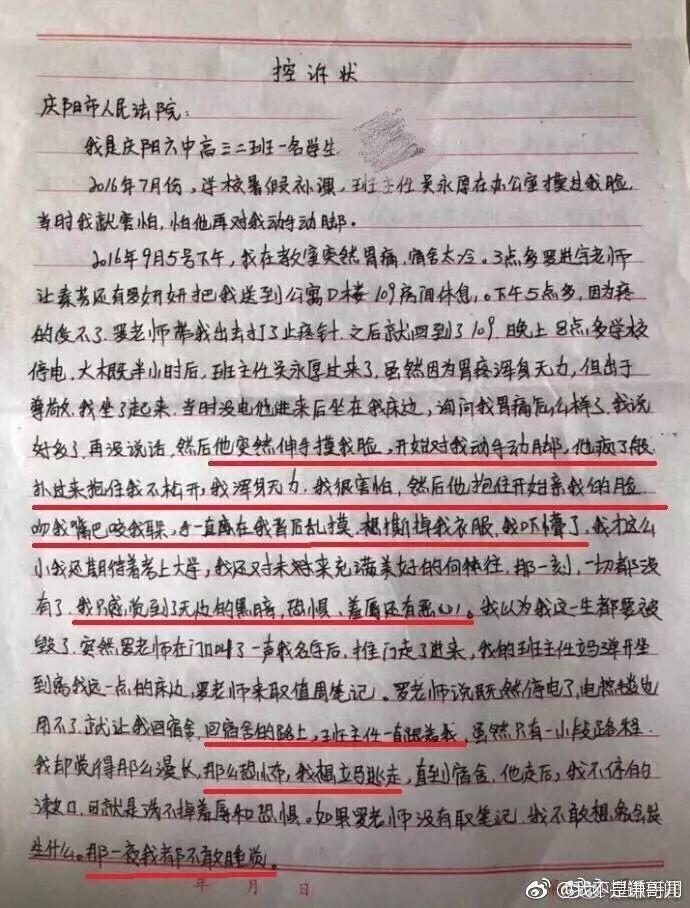 控诉状
庆阳市人民法院：
我是庆阳六中高三二班一名学生
2016年7月份，学校暑假补课，班主任吴永厚在办公室摸过我脸，
当时我就害怕，怕他再对我动手动脚。
2016年9月5号下午，我在教室突然胃痛，宿舍太冷。3点多罗进宇老师
让素芳还有罗妍妍把我送到公寓D楼109房间休息。下午5点多，因为疼
的受不了.罗老师带我出去打了止疼针.之后就回到了109.晚上8点多学校
停电，大概半小时后，班主任吴永厚过来了，虽然因为胃疼浑身无力，但出于
尊敬.我坐了起来.当时没电他进来后坐在我床边，询问我胃痛怎么样了.我说
好多了.再没说话，然后他突然伸手摸我脸，开始对我动手动脚，他疯了般
扑过来抱住我不松开，我浑身无力.我很害怕，然后他抱住开始亲我的脸
吻我嘴巴咬我耳朵，手一直在我背后乱摸.想撕掉我衣服，我吓懵了，我才这么
小我还期待着考上大学，我还对未来充满美好的向往，那一刻，一切都没
有了.我只感觉到了无边的黑暗，恐惧、羞辱还有恶心！我以为我这一生都要被
毁了.突然罗老师在门口叫了一声我名字后，推门走了进来，我的班主任立马弹开坐
到离我远一点的床边，罗老师来取值周笔记。罗老师说既然停电了，电热毯也
用不了.就让我回宿舍，回宿舍的路上，班主任一直跟着我，虽然只有一小段路程.
我却觉得那么漫长，那么恐怖，我想立马逃走，直到宿舍，他走后，我不停的
漱口，可就是洗不掉羞辱和恐惧。如果罗老师没有取笔记，我不敢想象会发
生什么。那一夜我都不敢睡觉。
年 月 日
@我不是谦哥儿